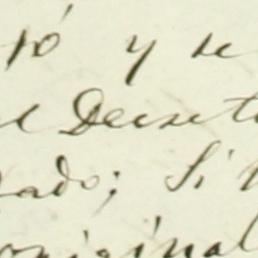 tó y se
el Decreto
rado; Si
original